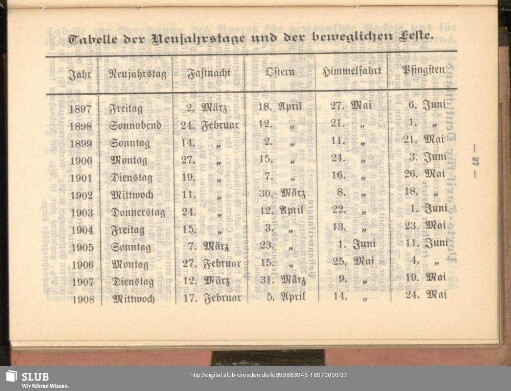 Tabelle der Neujahrstage und der beweglichen Feste.
Jahr Neujahrstag Fastnacht Ostern Himmelfahrt Pfingsten
1897 Freitag 2. März 18. April 27. Mai 6. Juni
1898 Sonnabend 24. Februar 12. „ 21. „ 1. „
1899 Sonntag 14. „ 2. „ 11. „ 21. Mai
1900 Montag 27. „ 15. „ 24. „ 3. Juni
1901 Dienstag 19. „ 7. „ 16. „ 26. Mai
1902 Mittwoch 11. „ 30. März 8. „ 18. „
1903 Donnerstag 24. „ 12. April 22. „ 1. Juni
1904 Freitag 15. „ 3. „ 13. „ 23. Mai
1905 Sonntag 7. März 23. „ 1. Juni 11. Juni
1906 Montag 27. Februar 15. „ 25. Mai 4. „
1907 Dienstag 12. März 31. März 9. „ 19. Mai
1908 Mittwoch 17. Februar 5. April 14. „ 24. Mai
SLUB
Wir führen Wissen.